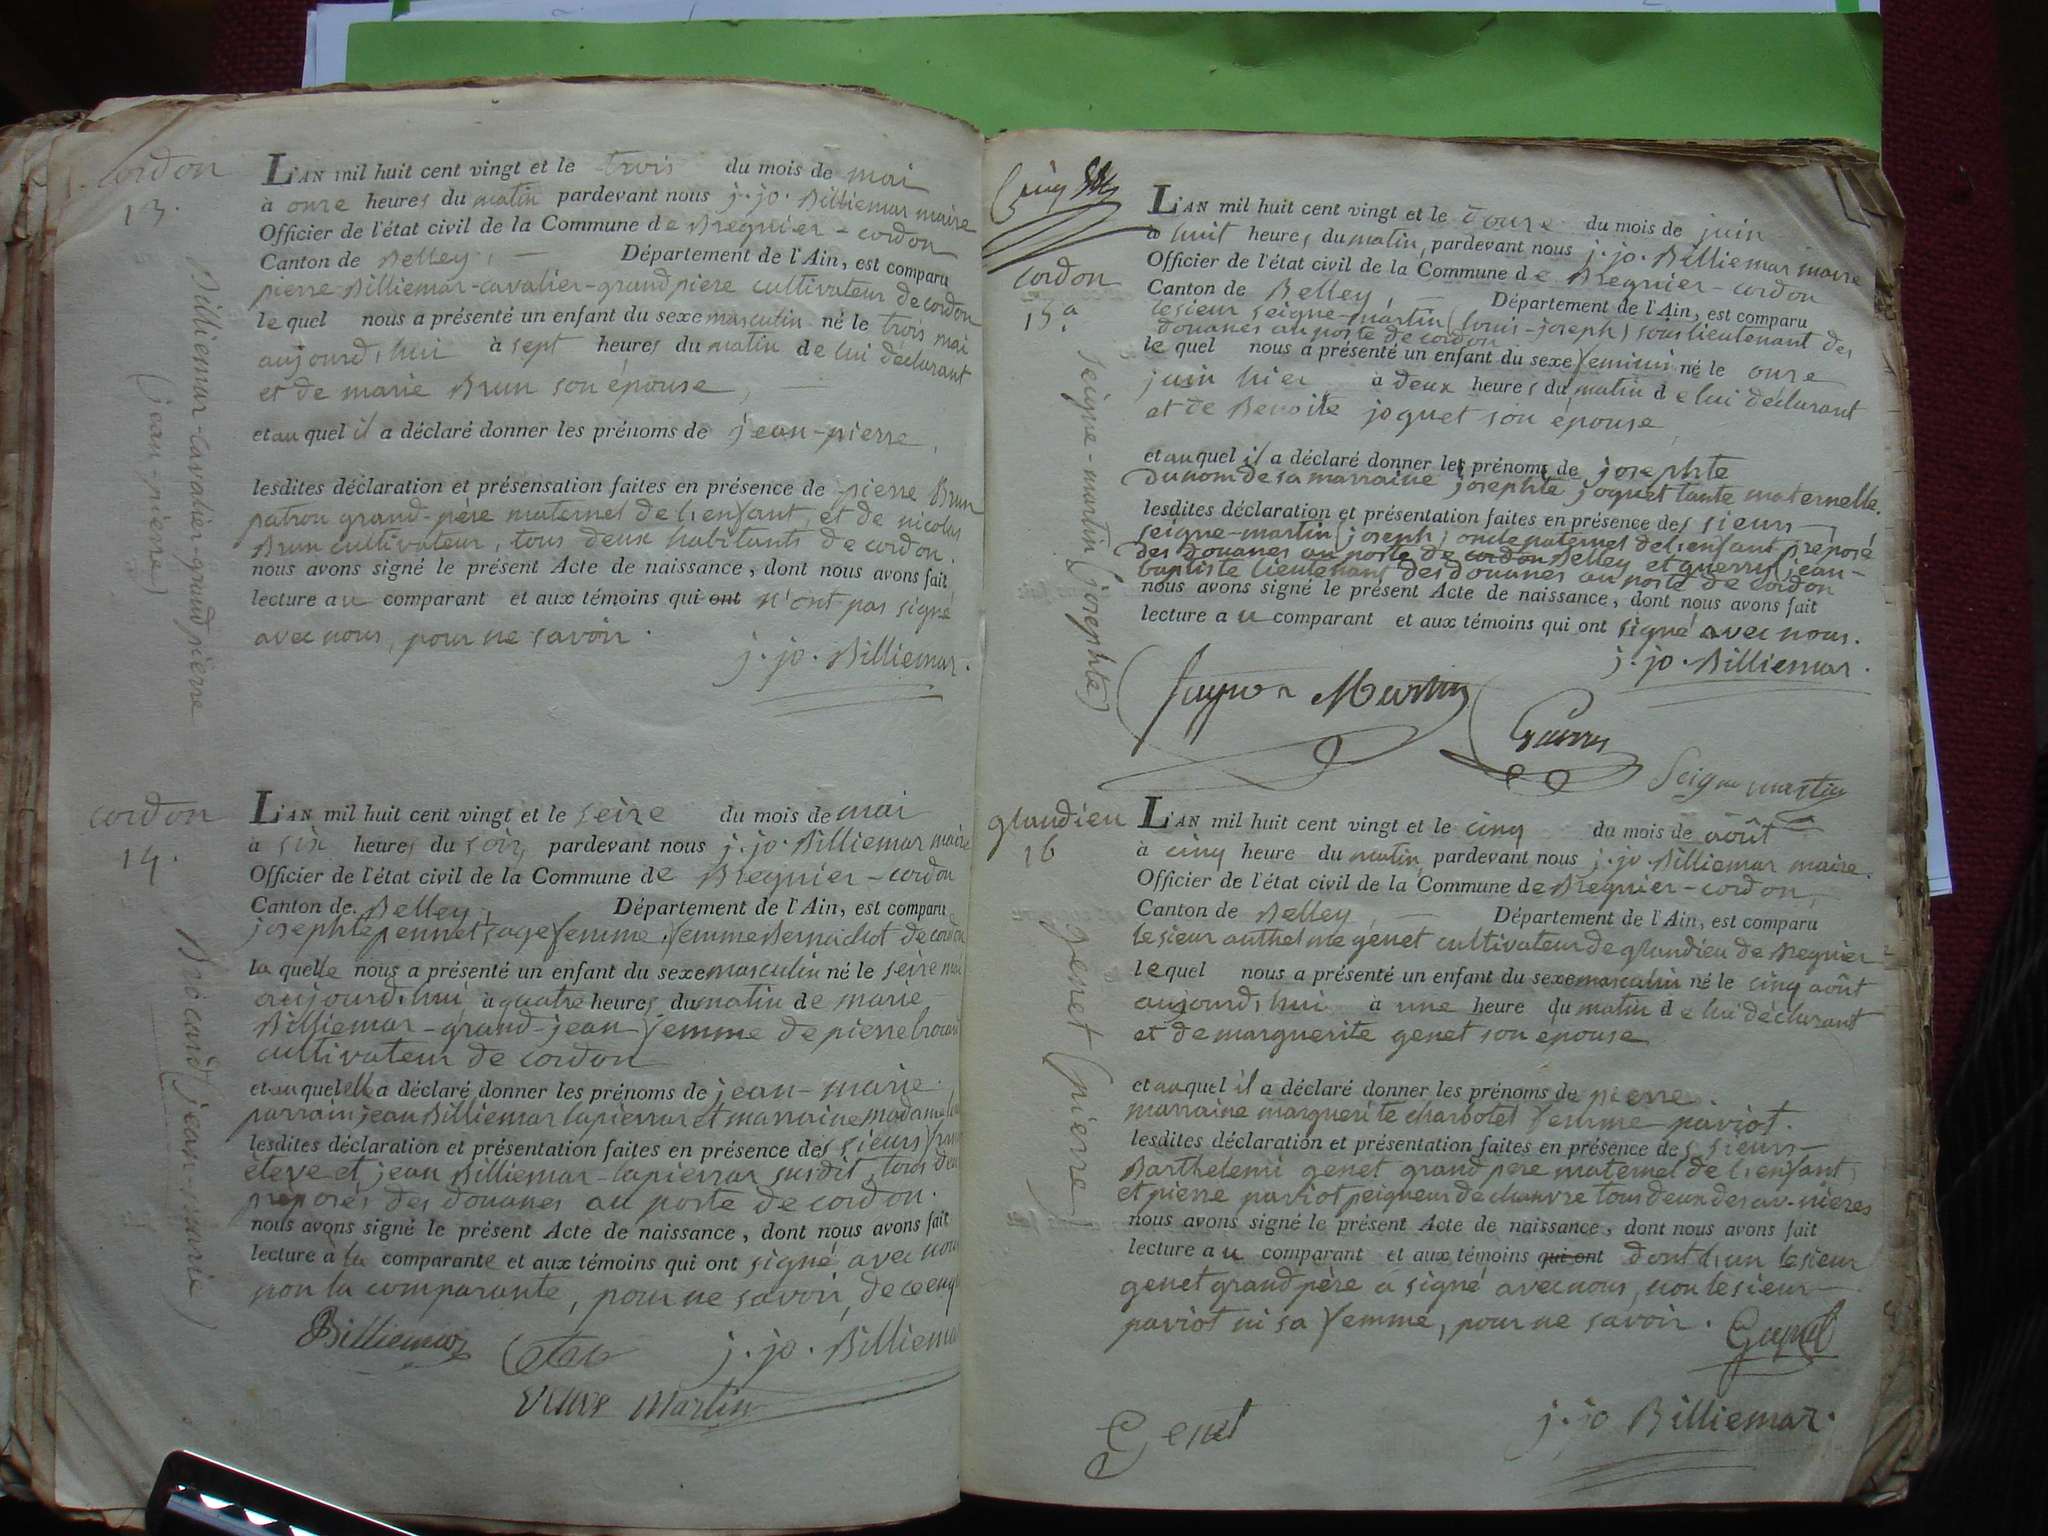 cordon
13.
Billiemar-Cavalier-grandpierre
(jean-pierre)
L'AN mil huit cent vingt et le trois du mois de mai
à onze heures du matin pardevant nous j. jo. Billiemar maire
Officier de l'état civil de la Commune de Bregnier-cordon
Canton de Belley, Département de l'Ain, est comparu
pierre Billiemar-cavalier-grandpiere cultivateur de cordon
lequel nous a présenté un enfant du sexe masculin né le trois mai
aujourd'hui à sept heures du matin de lui déclarant
et de marie Brun son épouse,
et au quel il a déclaré donner les prénoms de jean-pierre,
lesdites déclaration et présensation faites en présence de pierre Brun
patron grand-père maternel de l'enfant, et de nicolas
Brun cultivateur, tous deux habitants de cordon.
nous avons signé le présent Acte de naissance, dont nous avons fait
lecture au comparant et aux témoins qui ont n'ont pas signé
avec nous, pour ne savoir.
j. jo. Billiemar.
cordon
14.
Brocard (jean-marie)
L'AN mil huit cent vingt et le seize du mois de mai
à six heures du soir, pardevant nous j. jo. Billiemar maire
Officier de l'état civil de la Commune de Bregnier-cordon
Canton de Belley, Département de l'Ain, est comparue
josephte pennet sage femme, femme Bernachot de cordon
laquelle nous a présenté un enfant du sexe masculin né le seize mai
aujourd'hui à quatre heures du matin de marie
Billiemar-grand-jean femme de pierre brocard
cultivateur de cordon
et au quel elle a déclaré donner les prénoms de jean-marie.
parrain jean Billiemar lapierrar et marraine madame
lesdites déclaration et présentation faites en présence des sieurs
éleve et jean Billiemar-lapierrar susdit, tous deux
préposés des douanes au poste de cordon.
nous avons signé le présent Acte de naissance, dont nous avons fait
lecture à la comparante et aux témoins qui ont signé avec nous
non la comparante, pour ne savoir, de ce enq
Billiemar j. jo. Billiemar
veuve Martin
cinq
cordon
15a
Seigne-martin (josephte)
L'AN mil huit cent vingt et le douze du mois de juin
à huit heures du matin, pardevant nous j. jo. Billiemar maire
Officier de l'état civil de la Commune de Bregnier-cordon
Canton de Belley, Département de l'Ain, est comparu
le sieur seigne-martin (louis-joseph) sous lieutenant des
douanes au poste de cordon
lequel nous a présenté un enfant du sexe feminin né le onze
juin hier à deux heures du matin de lui déclarant
et de Benoite joguet son épouse
et au quel il a déclaré donner les prénoms de josephte
du nom de sa marraine josephte joguet tante maternelle.
lesdites déclaration et présentation faites en présence des sieurs
seigne-martin (joseph) oncle paternel de l'enfant préposé
des douanes au poste de cordon Belley et guerry (jean-
baptiste lieutenant des douanes au poste de cordon
nous avons signé le présent Acte de naissance, dont nous avons fait
lecture au comparant et aux témoins qui ont signé avec nous.
j. jo. Billiemar.
Martin
Seigne martin
glandieu
16
genet (pierre)
L'AN mil huit cent vingt et le cinq du mois de août
à cinq heure du matin, pardevant nous j. jo. Billiemar maire.
Officier de l'état civil de la Commune de Bregnier-cordon,
Canton de Belley, Département de l'Ain, est comparu
le sieur anthelme genet cultivateur de glandieu de Bregnier
lequel nous a présenté un enfant du sexe masculin né le cinq août
aujourd'hui à une heure du matin de lui déclarant
et de marguerite genet son épouse
et au quel il a déclaré donner les prénoms de pierre.
marraine marguerite charbotel femme paviot.
lesdites déclaration et présentation faites en présence des sieurs
Barthelemi genet grand père maternel de l'enfant,
et pierre paviot peigneur de chanvre tous deux des av-nieres
nous avons signé le présent Acte de naissance, dont nous avons fait
lecture au comparant et aux témoins qui ont dont l'un le sieur
genet grand père a signé avec nous, non le sieur
paviot ni sa femme, pour ne savoir. Genet
Genet
j. jo Billiemar.